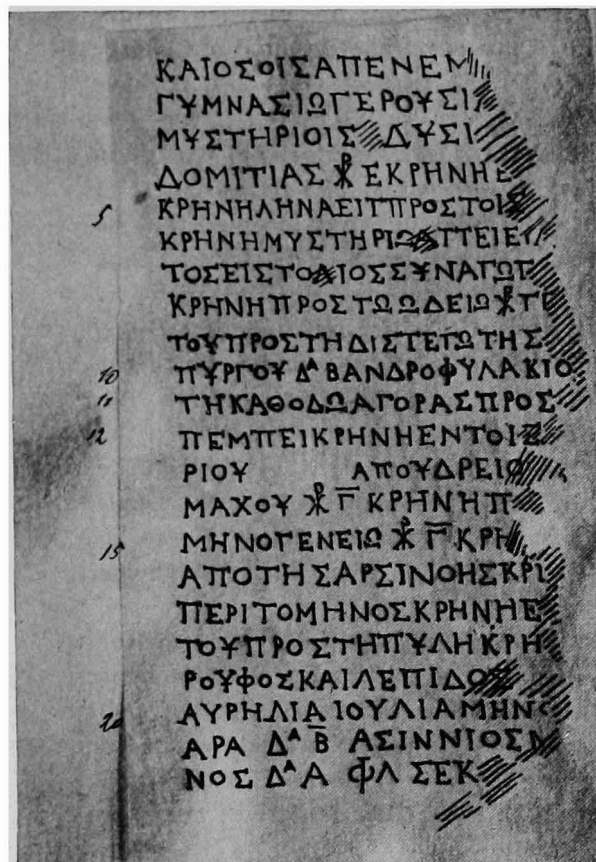 ΚΑΙΟΣΟΙΣΑΠΕΝΕΜ
ΓΥΜΝΑΣΙΩΓΕΡΟΥΣΙ
ΜΥΣΤΗΡΙΟΙΣ ΔΥΣΙ
ΔΟΜΙΤΙΑΣ ⳩ ΕΚΡΗΝΗΕ
5 ΚΡΗΝΗΛΗΝΑΕΙΤΠΡΟΣΤΟΙΣ
ΚΡΗΝΗΜΥΣΤΗΡΙΩ ΤΤΕΙΕΥ
ΤΟΣΕΙΣΤΟΔΙΟΣΣΥΝΑΓΩΓ
ΚΡΗΝΗΠΡΟΣΤΩΩΔΕΙΩ⳩ΓΕ
ΤΟΥΠΡΟΣΤΗΔΙΣΤΕΓΩΤΗΣ
10 ΠΥΡΓΟΥ ΔᴬΒΑΝΔΡΟΦΥΛΑΚΙΟ
11 ΤΗΚΑΘΟΔΩΑΓΟΡΑΣΠΡΟΣ
12 ΠΕΜΠΕΙΚΡΗΝΗΕΝΤΟΙΣ
ΡΙΟΥ ΑΠΟΥΔΡΕΙΟ
ΜΑΧΟΥ ⳩ Γ̅ ΚΡΗΝΗΠ
15 ΜΗΝΟΓΕΝΕΙΩ ⳩ Γ̅ ΚΡΗ
ΑΠΟΤΗΣΑΡΣΙΝΟΗΣΚΡΙ
ΠΕΡΙΤΟΜΗΝΟΣΚΡΗΝΗΕ
ΤΟΥΠΡΟΣΤΗΠΥΛΗΚΡΗ
ΡΟΥΦΟΣΚΑΙΛΕΠΙΔΟΣ
20 ΑΥΡΗΛΙΑΙΟΥΛΙΑΜΗΝΟ
ΑΡΑ Δᴬ Β̅ ΑΣΙΝΝΙΟΣΝ
ΝΟΣ ΔᴬΑ ΦΛ ΣΕΚ